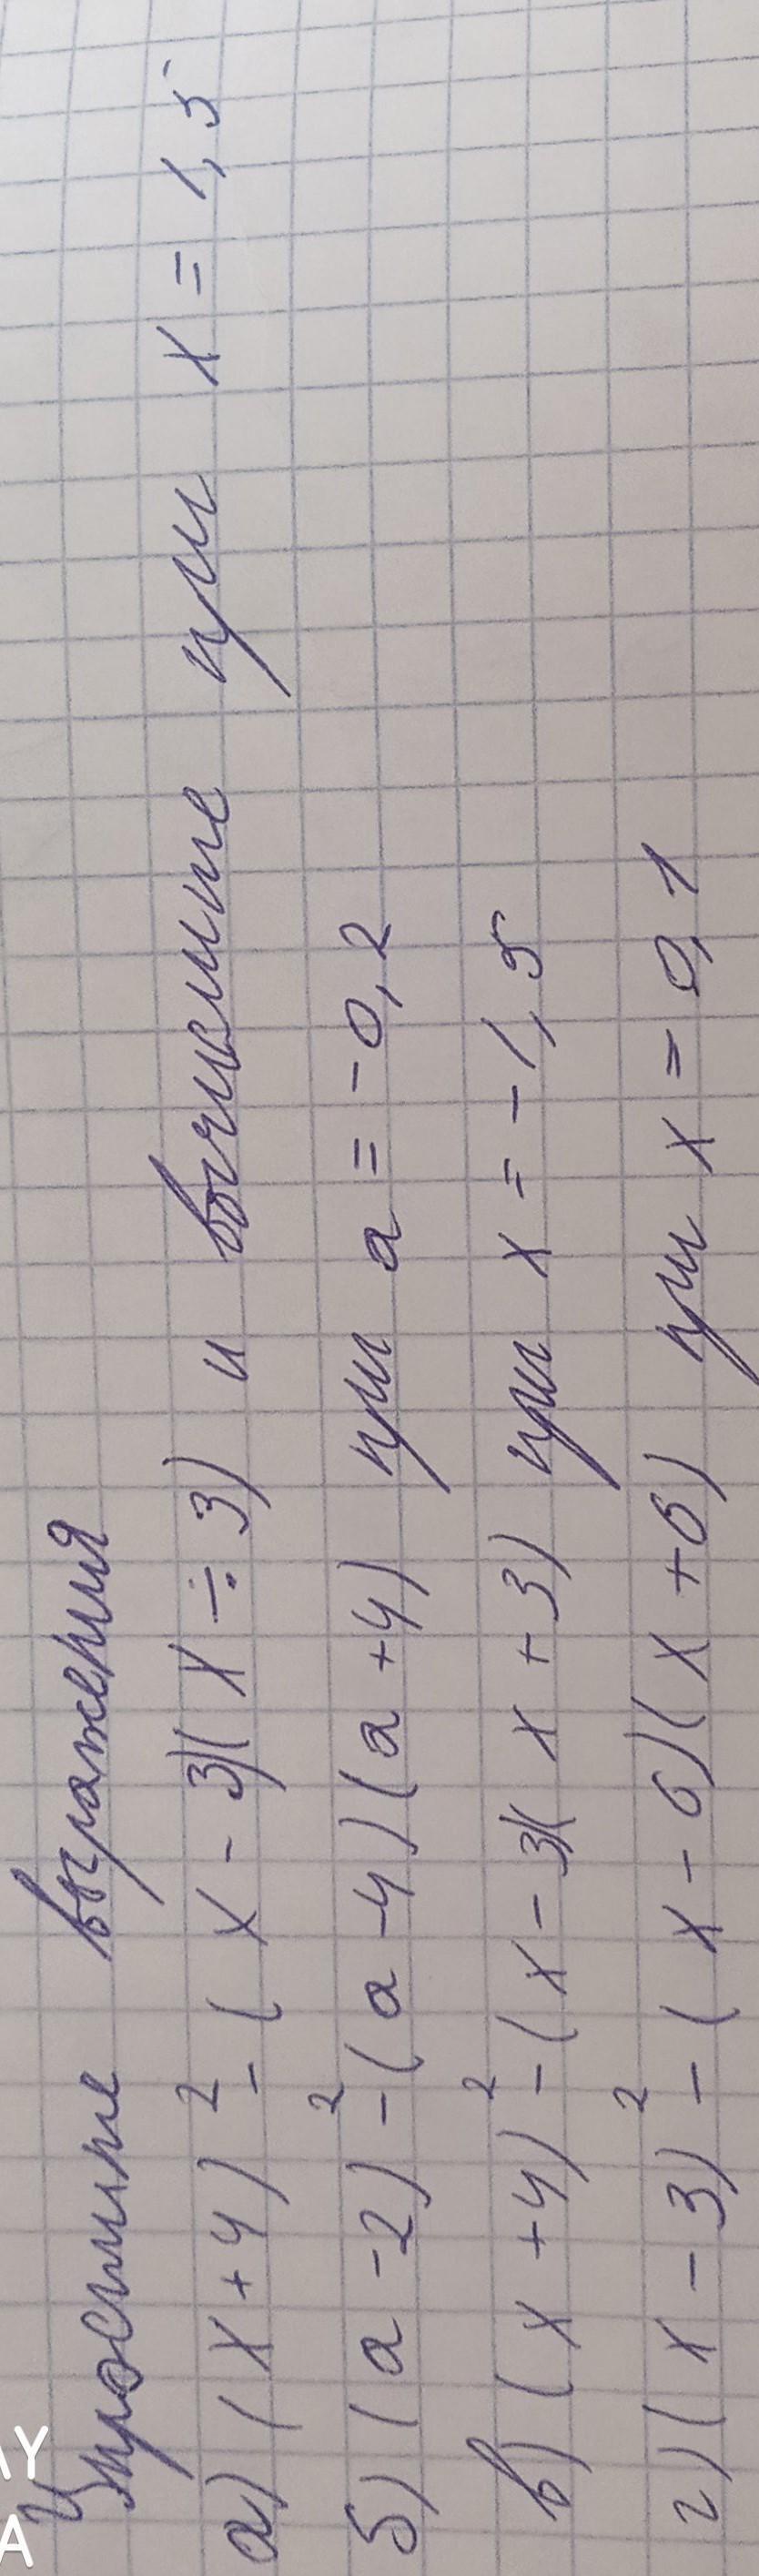 Упростите выражения
а) (x+4)² - (x - 3)(x ÷ 3) и вычислите при x = 1,5
б) (a -2)² - (a -4)(a +4) при a = -0,2
в) (x +4)² - (x - 3)(x +3) при x = -1,5
г) (x - 3)² - (x - 6)(x +6) при x = 0,1
AY
A